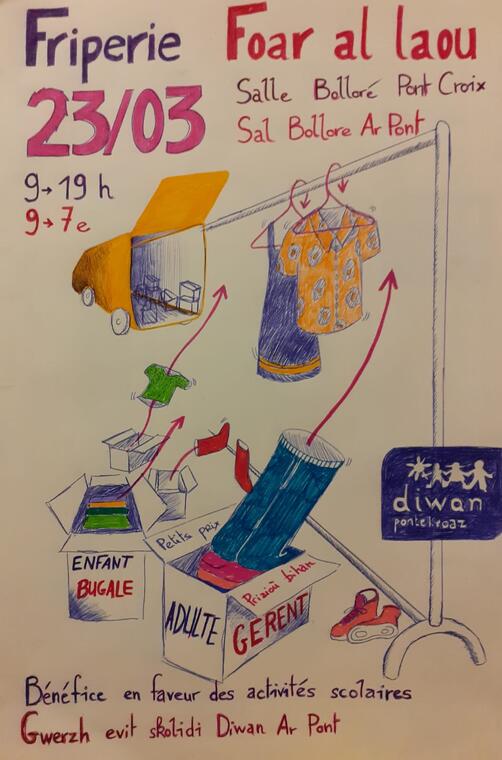 Friperie
Foar al laou
23/03
Salle Bolloré Pont Croix
Sal Bollore Ar Pont
9→19 h
9→7e
diwan
pontekroaz
ENFANT
BUGALE
Petits prix
Prizioù bihan
ADULTE
GERENT
Bénéfice en faveur des activités scolaires
Gwerzh evit skolidi Diwan Ar Pont